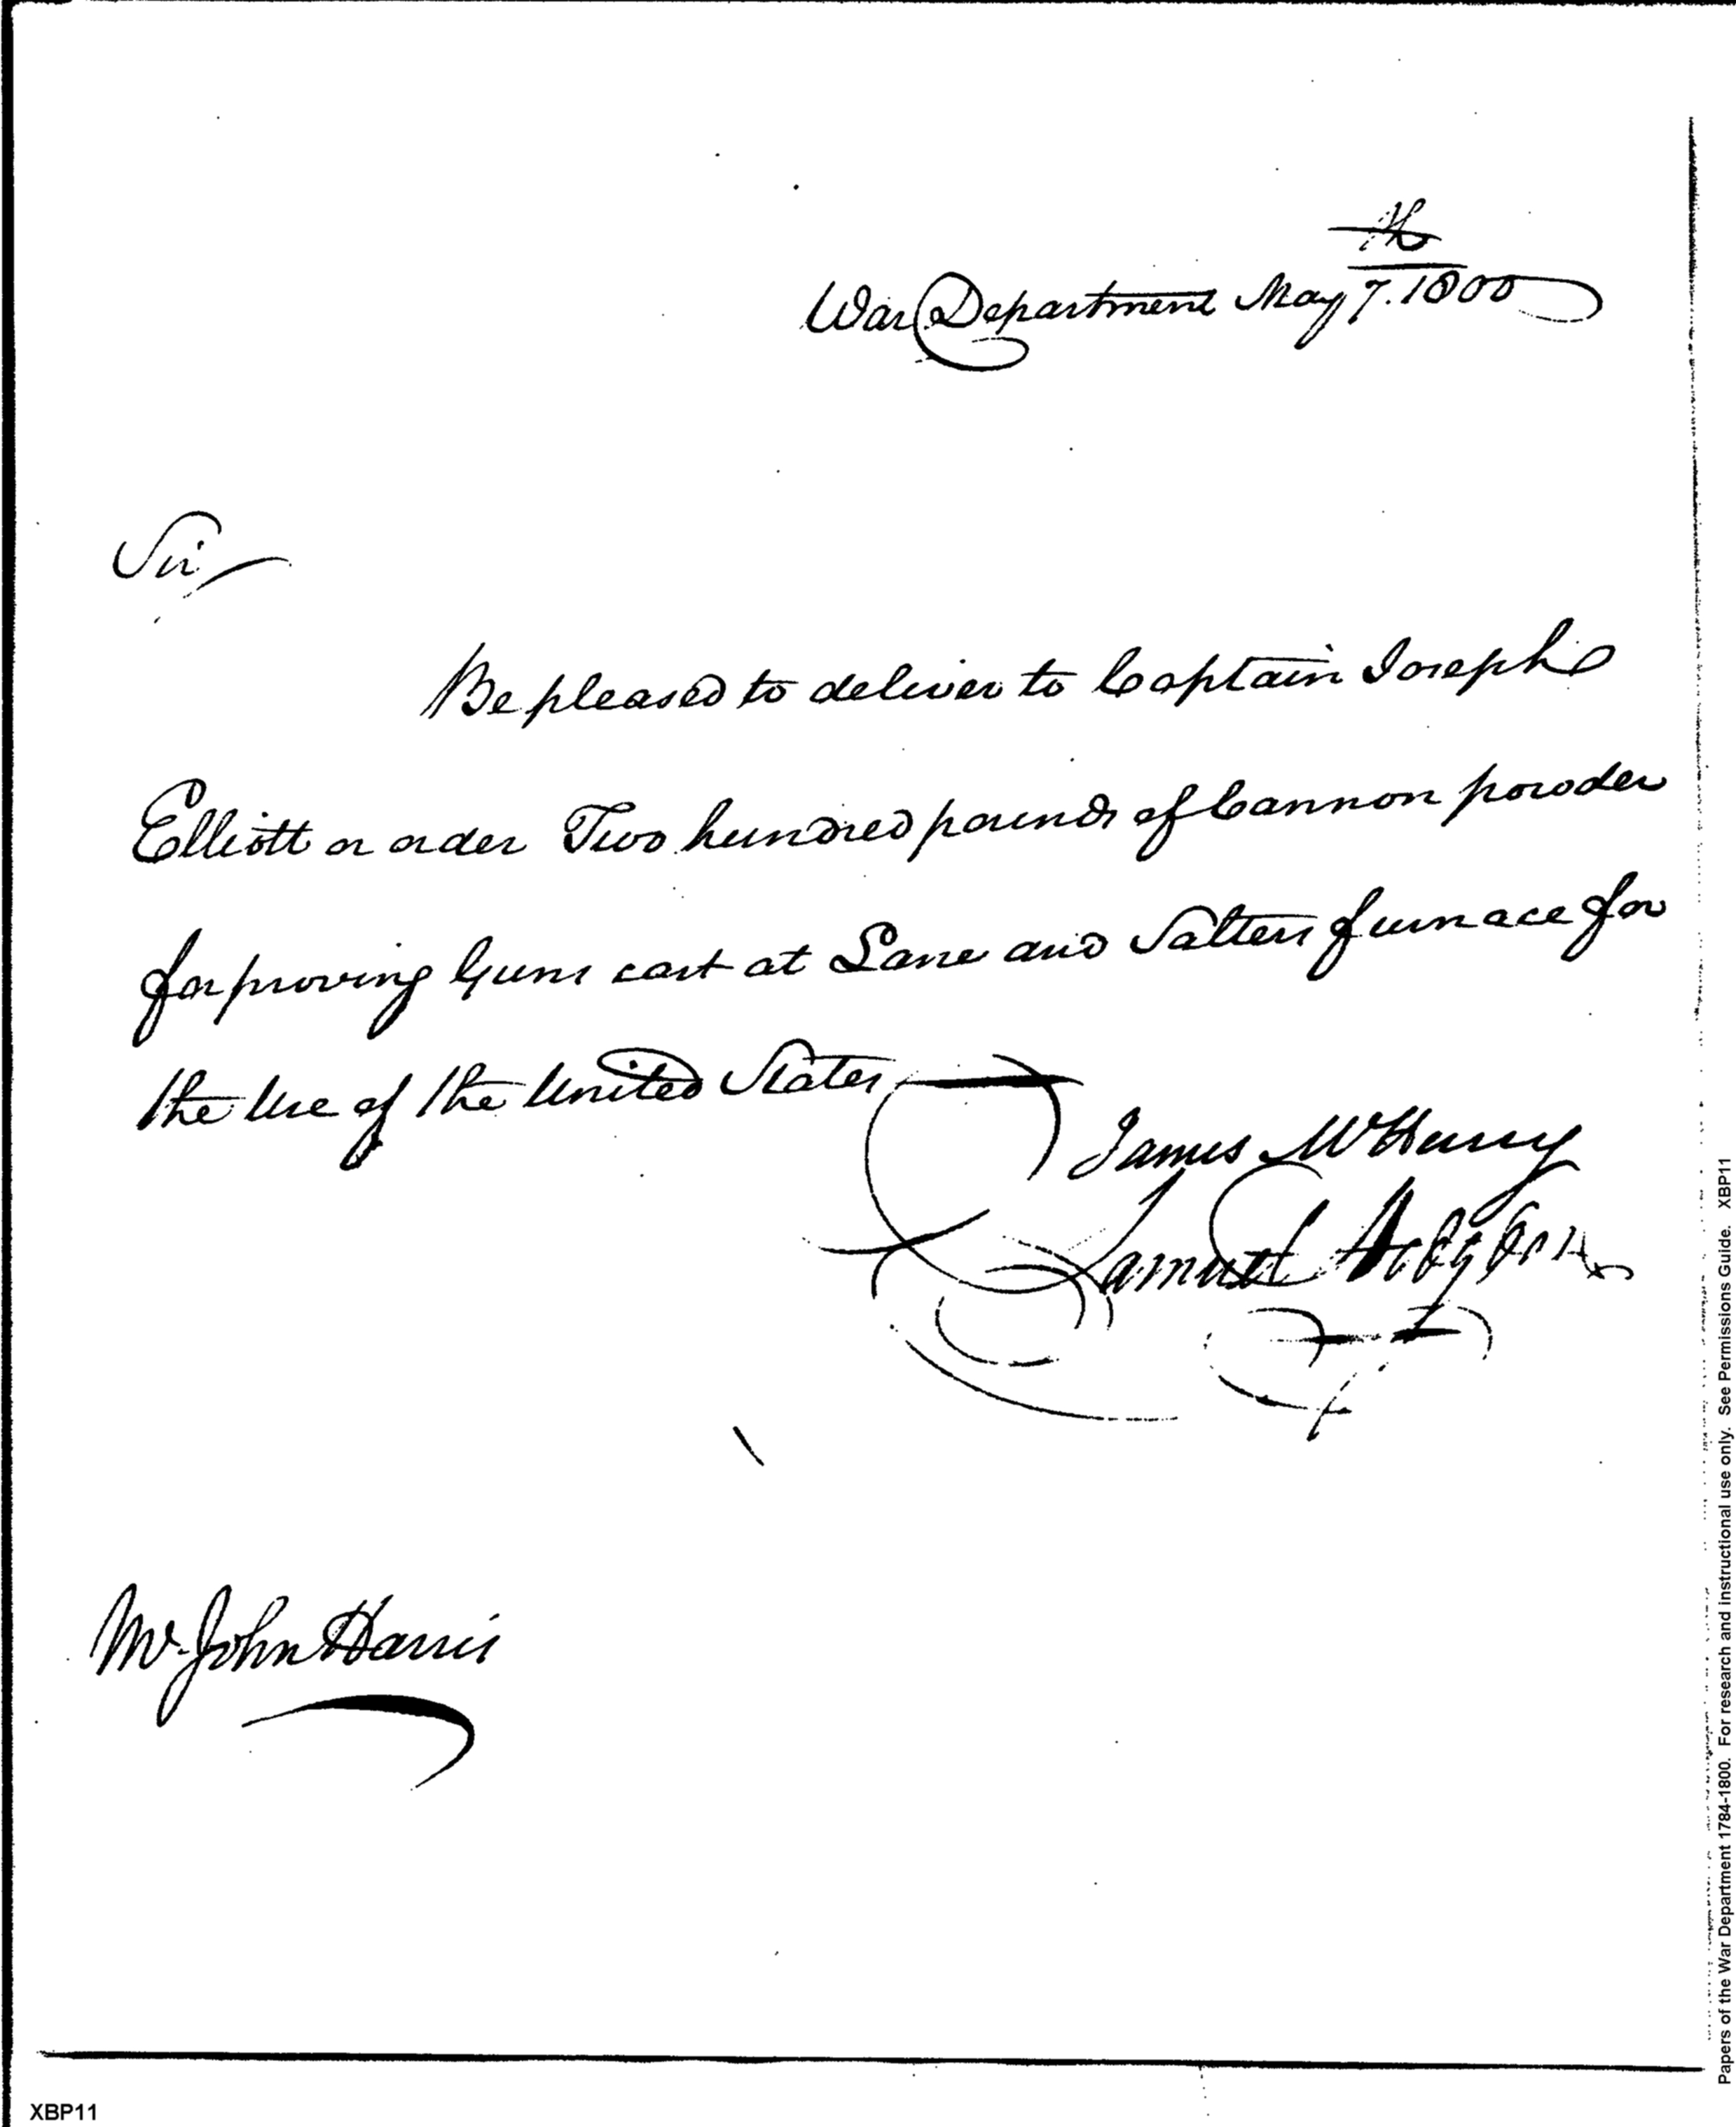 War Department May 7th. 1800
Sir
Be pleased to deliver to Captain Joseph
Elliott or order Two hundred pounds of Cannon powder
for proving Guns cast at Lane and Salters furnace for
the Use of the United States
James McHenry
Samuel Hodgdon
Mr. John Harris
Papers of the War Department 1784-1800. For research and instructional use only. See Permissions Guide. XBP11
XBP11